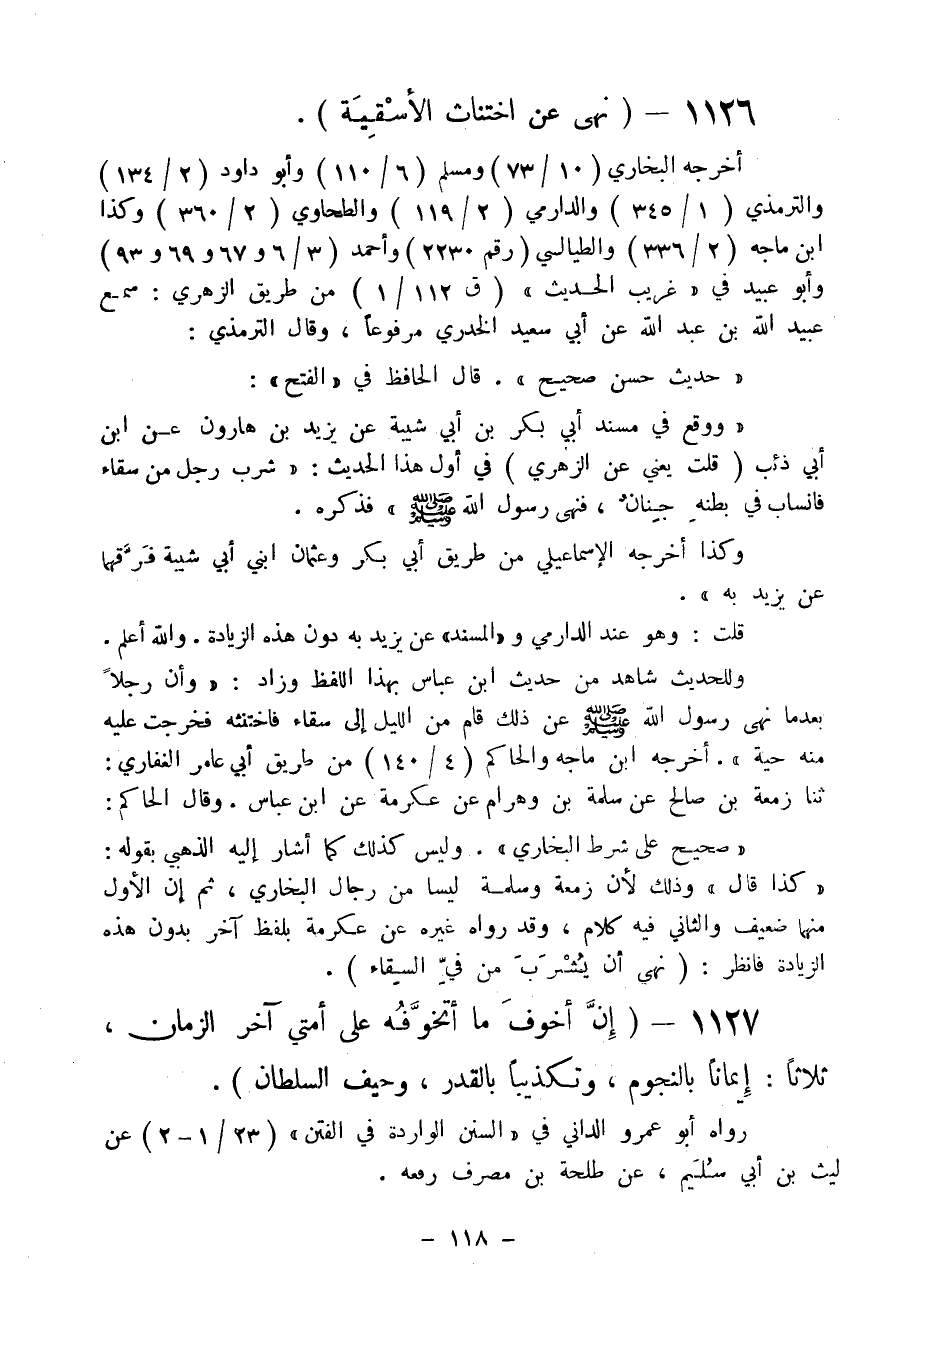 ١١٢٦ – ( نهى عن اختناث الأسْقِيَة ) .
أخرجه البخاري ( ١٠ / ٧٣ ) ومسلم ( ٦ / ١١٠ ) وأبو داود ( ٢ / ١٣٤ )
والترمذي ( ١ / ٣٤٥ ) والدارمي ( ٢ / ١١٩ ) والطحاوي ( ٢ / ٣٦٠ ) وكذا
ابن ماجه ( ٢ / ٣٣٦ ) والطيالسي ( رقم ٢٢٣٠ ) وأحمد ( ٣ / ٦ و ٦٧ و ٦٩ و ٩٣ )
وأبو عبيد في « غريب الحديث » ( ق ١١٢ / ١ ) من طريق الزهري : سمع
عبيد الله بن عبد الله عن أبي سعيد الخدري مرفوعاً ، وقال الترمذي :
« حديث حسن صحيح » . قال الحافظ في « الفتح » :
« ووقع في مسند أبي بكر بن أبي شيبة عن يزيد بن هارون عن ابن
أبي ذئب ( قلت يعني عن الزهري ) في أول هذا الحديث : « شرب رجل من سقاء
فانساب في بطنهِ جِنانٌ ، فنهى رسول الله ﷺ » فذكره .
وكذا أخرجه الإسماعيلي من طريق أبي بكر وعثمان ابني أبي شيبة فَرَّقها
عن يزيد به » .
قلت : وهو عند الدارمي و «المسند» عن يزيد به دون هذه الزيادة . والله أعلم .
وللحديث شاهد من حديث ابن عباس بهذا اللفظ وزاد : « وأن رجلاً
بعدما نهى رسول الله ﷺ عن ذلك قام من الليل إلى سقاء فاختنثه فخرجت عليه
منه حية » . أخرجه ابن ماجه والحاكم ( ٤ / ١٤٠ ) من طريق أبي عامر الغفاري :
ثنا زمعة بن صالح عن سلمة بن وهرام عن عكرمة عن ابن عباس . وقال الحاكم :
« صحيح على شرط البخاري » . وليس كذلك كما أشار إليه الذهبي بقوله :
« كذا قال » وذلك لأن زمعة وسلمة ليسا من رجال البخاري ، ثم إن الأول
منهما ضعيف والثاني فيه كلام ، وقد رواه غيره عن عكرمة بلفظ آخر بدون هذه
الزيادة فانظر : ( نهى أن يُشْرَبَ من فيِّ السِّقاء ) .
١١٢٧ – ( إنَّ أخوفَ ما أتخوَّفُه على أمتي آخر الزمان ،
ثلاثاً : إيماناً بالنجوم ، وتكذيباً بالقدر ، وحيف السلطان ) .
رواه أبو عمرو الداني في « السنن الواردة في الفتن » ( ٢٣ / ١ – ٢ ) عن
ليث بن أبي سُلَيم ، عن طلحة بن مصرف رفعه .
– ١١٨ –